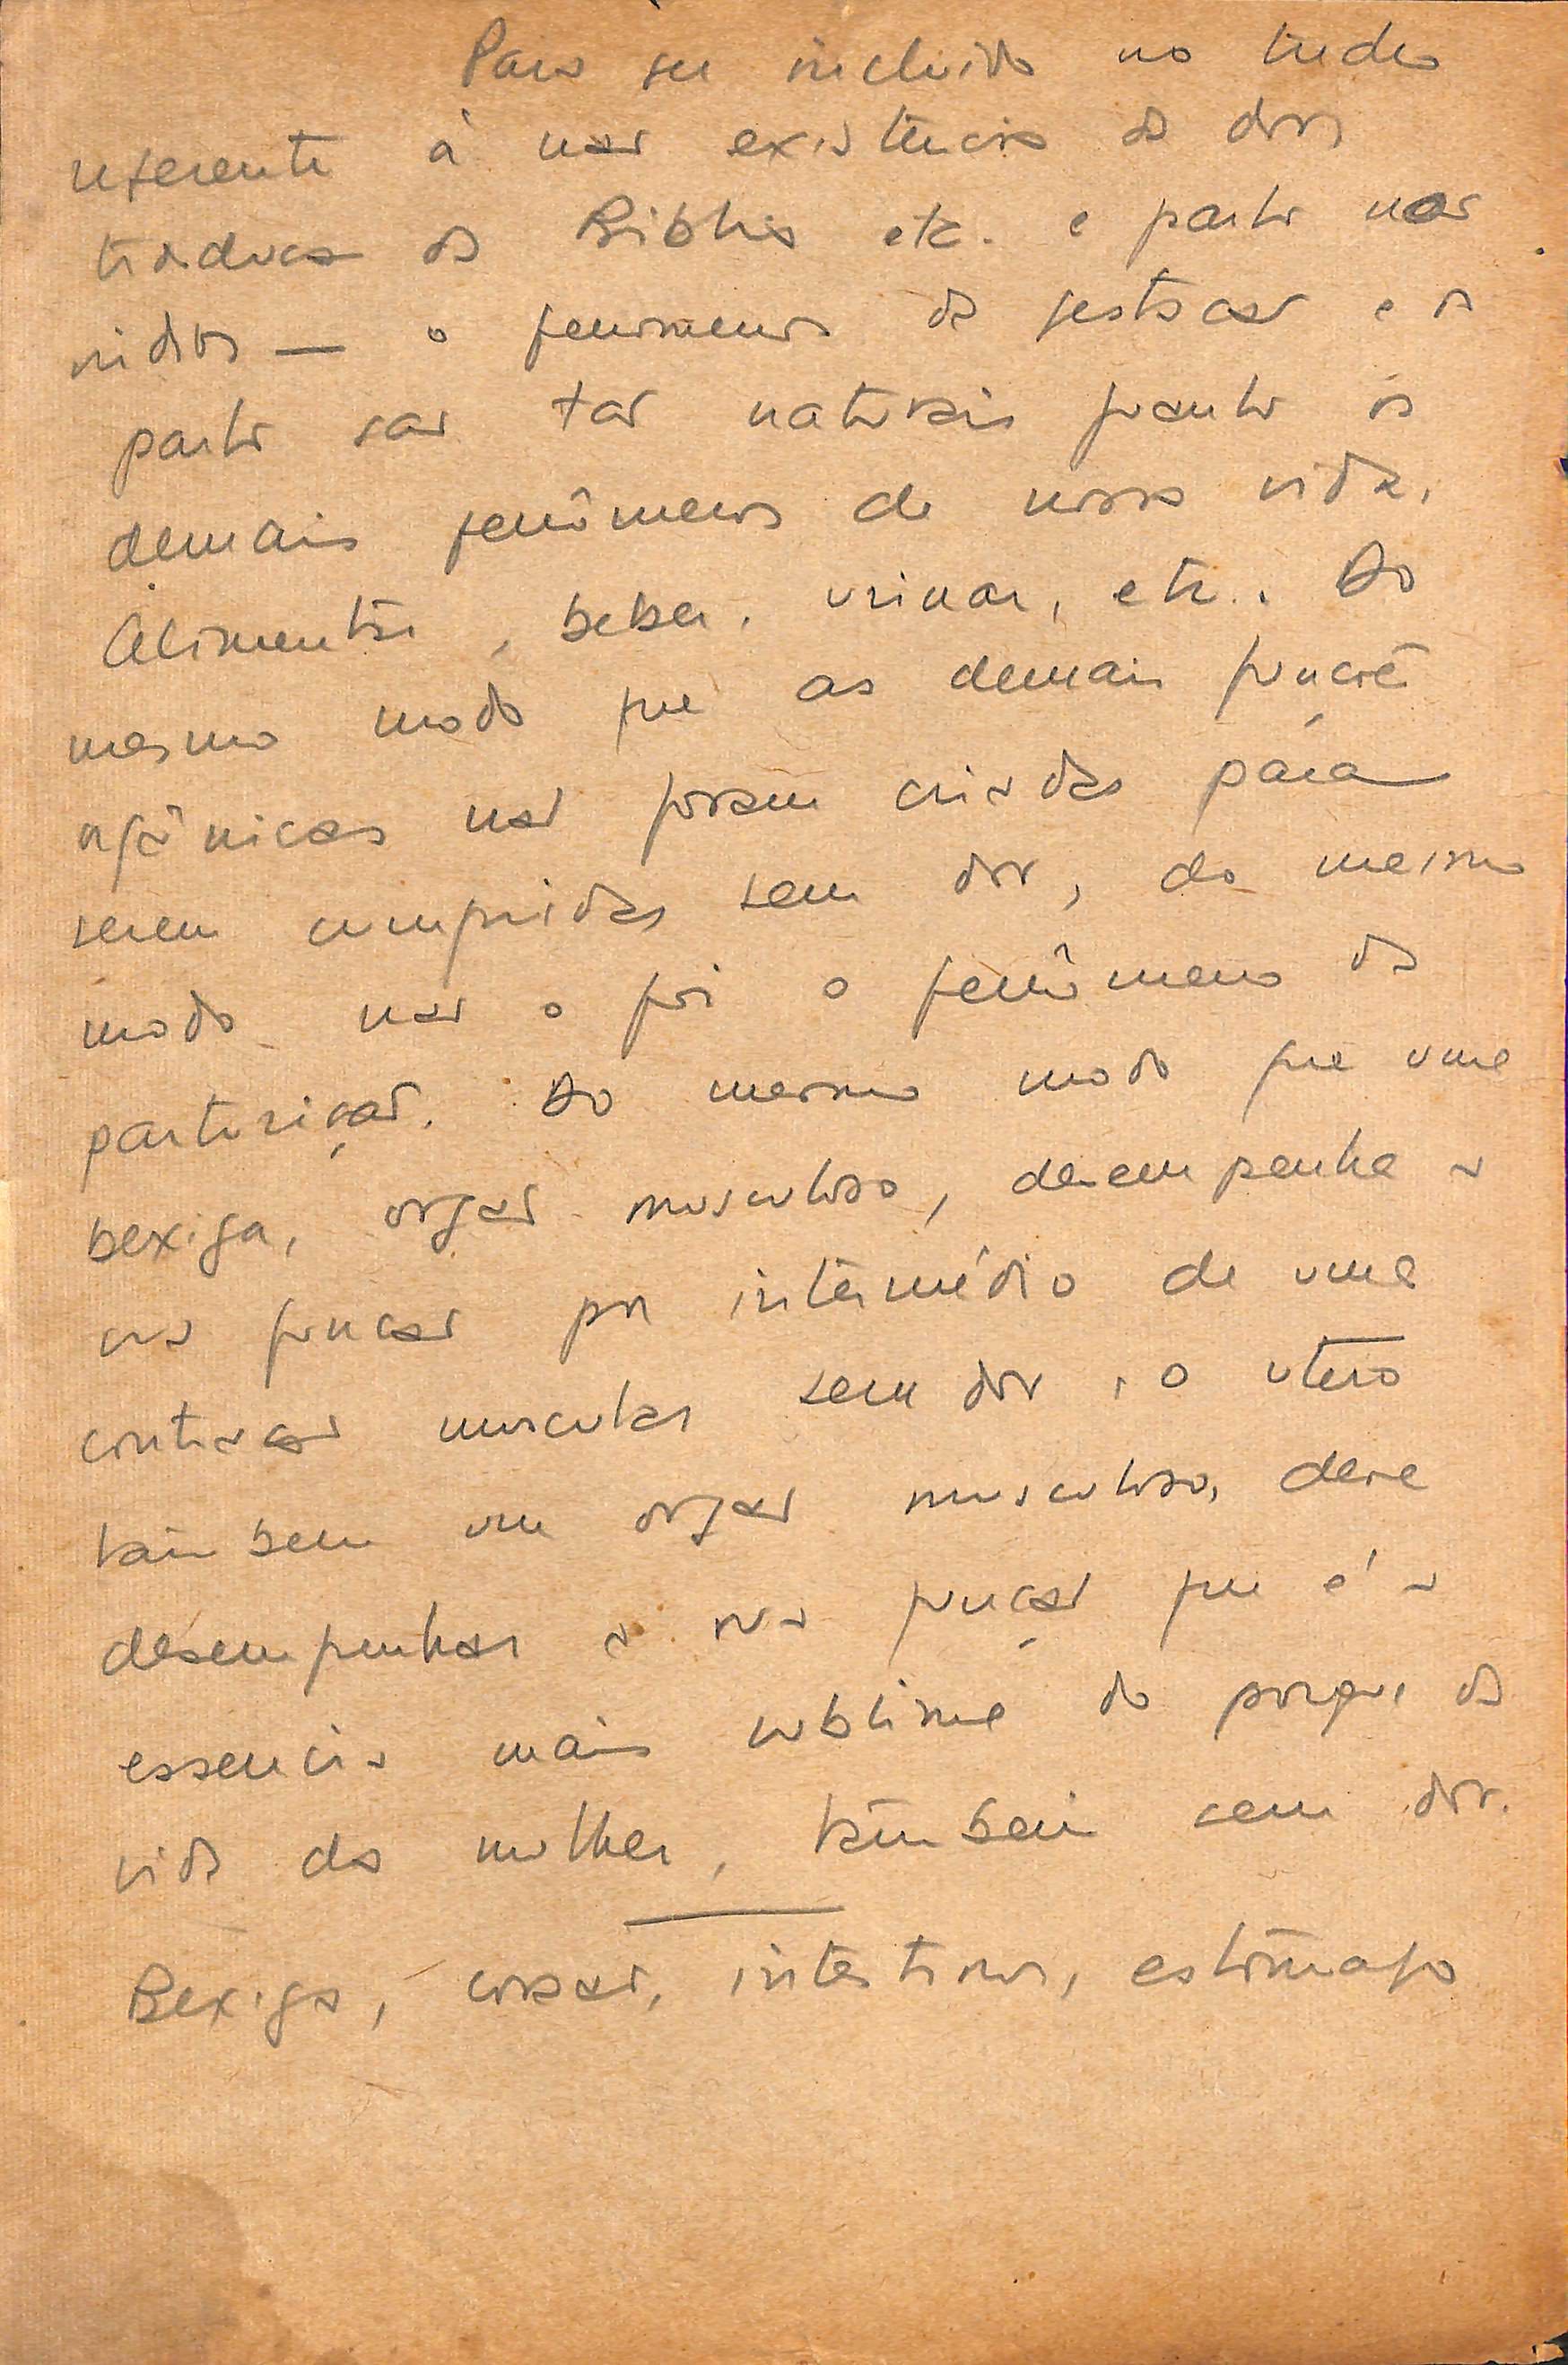 Para ser incluido no
referente á não existencia da dor,
traducão da Biblia etc. e parto nas
indias — o fenomeno da gestacão e o
parto são tão naturais quanto os
demais fenômenos de nossa vida.
Alimentar, beber, urinar, etc.. Do
mesmo modo que as demais funcõe
orgânicas não foram criadas para
serem cumpridas sem dor, do mesmo
modo não o foi o fenômeno da
parturição. Do mesmo modo que uma
bexiga, orgão musculoso, desempenha a
sua funcão por intermédio de uma
contracão muscular sem dor, o utero
tambem um orgão musculoso, deve
desempenhar a sua função que é a
essencia mais sublime do porque da
vida da mulher, tambem sem dor.
Bexiga, coração, intestinos, estômago